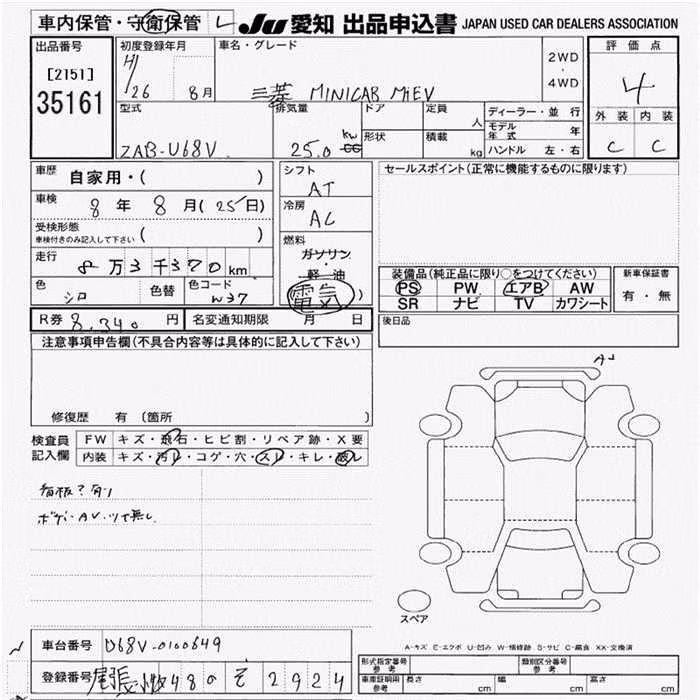 車内保管・守衛保管 レ JU 愛知 出品申込書 JAPAN USED CAR DEALERS ASSOCIATION
出品番号
[2151]
35161
初度登録年月
H26 8月
車名・グレード
三菱 MINICAB MiEV
2WD
・
4WD
評価点
4
外装 内装
C C
型式
ZAB-U68V
排気量
25.0 kw cc
ドア
形状
定員 人
積載 kg
ディーラー・並行
モデル年式 年
ハンドル 左・右
車歴 自家用・( )
車検 8年 8月(25日)
受検形態
車検付きのみ記入して下さい ( )
走行 8万3千370km
色 シロ
色替
色コード W37
シフト
AT
冷房
AC
燃料
ガソリン
・
軽油
電気 )
セールスポイント(正常に機能するものに限ります)
装備品(純正品に限り○をつけてください)
PS PW エアB AW
SR ナビ TV カワシート
新車保証書
有・無
R券 8,340 円 名変通知期限 月 日
後日品
注意事項申告欄(不具合内容等は具体的に記入して下さい)
修復歴 有 〔箇所 〕
検査員
記入欄
FW キズ・飛石・ヒビ割・リペア跡・X要
内装 キズ・汚レ・コゲ・穴・スレ・キレ・破レ
看板?有り
ボデーAU.ツヤ無し
スペア
A-キズ E-エクボ U-凹み W-補修跡 S-サビ C-腐食 XX-交換済
車台番号 U68V-0100649
登録番号 尾張小牧 480 そ 2924
形式指定番号
参考
類別区分番号
参考
車庫証明用
参考
長さ cm 幅 cm 高さ cm